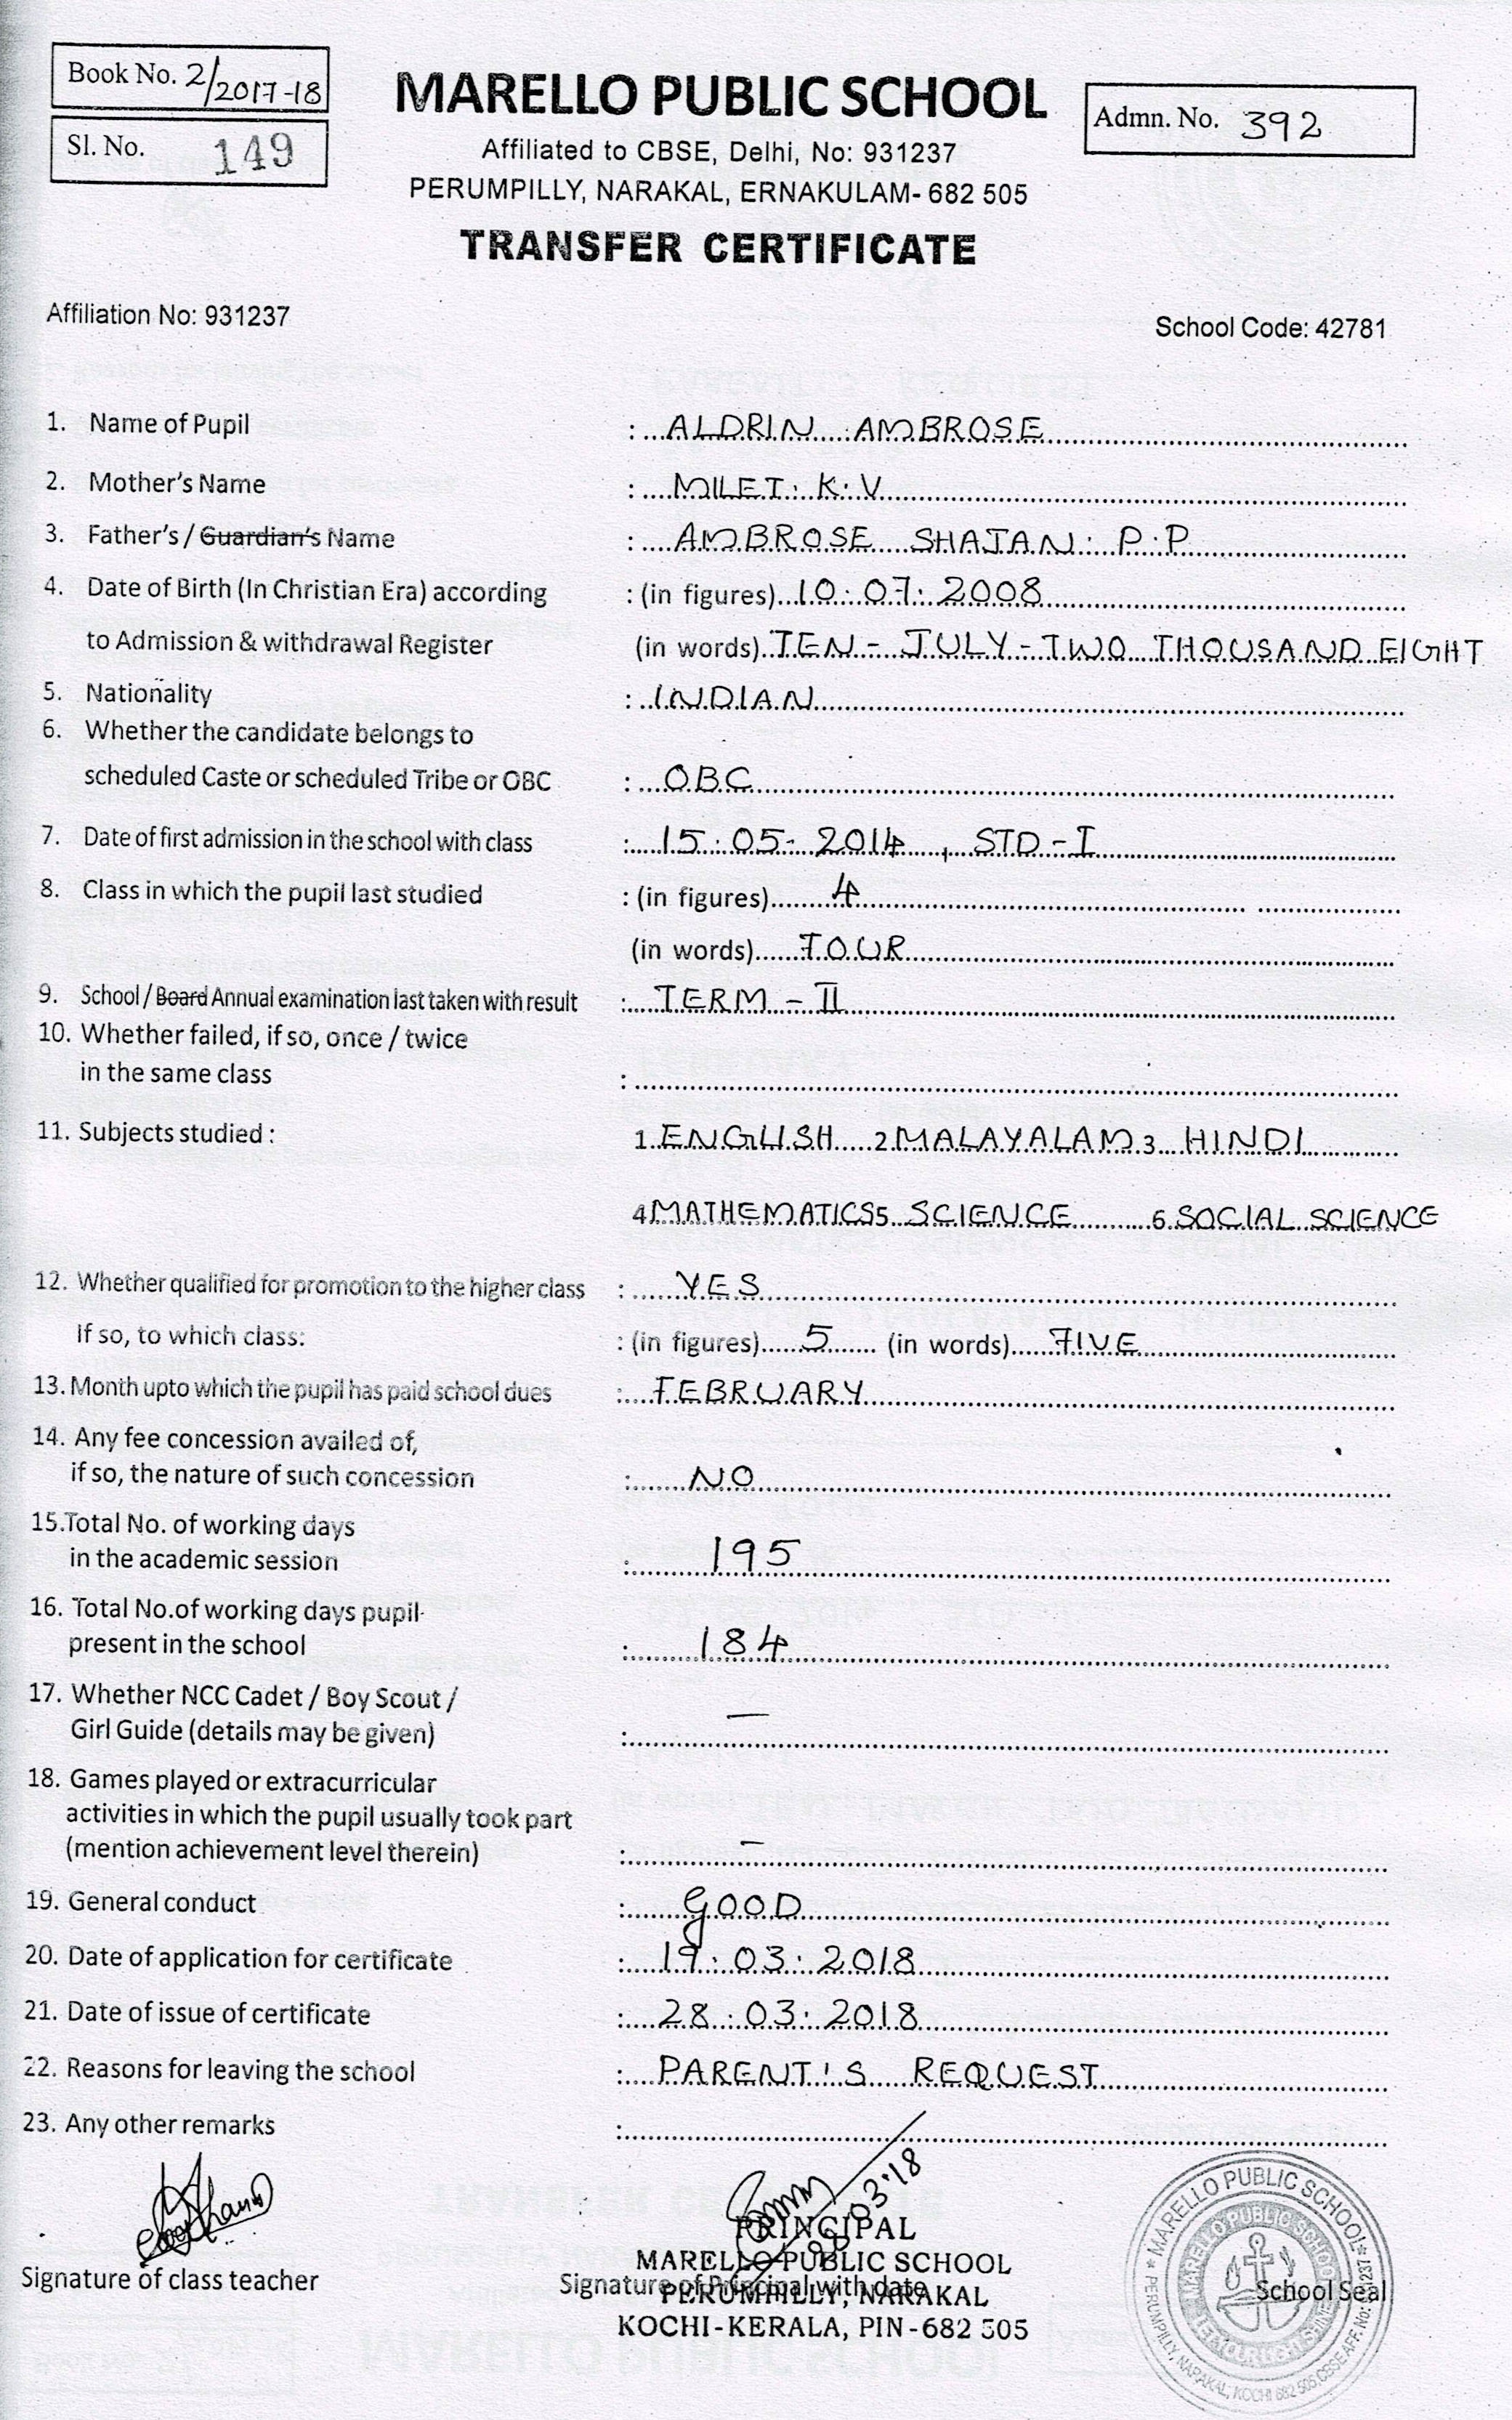 Book No. 2/2017-18
Sl. No. 149
MARELLO PUBLIC SCHOOL
Admn. No. 392
Affiliated to CBSE, Delhi, No: 931237
PERUMPILLY, NARAKAL, ERNAKULAM- 682 505
TRANSFER CERTIFICATE
Affiliation No: 931237
School Code: 42781
1. Name of Pupil : ALDRIN AMBROSE
2. Mother's Name : MILET. K. V
3. Father's / Guardian's Name : AMBROSE SHAJAN. P. P
4. Date of Birth (In Christian Era) according : (in figures) 10.07.2008
to Admission & withdrawal Register (in words) TEN - JULY - TWO THOUSAND EIGHT
5. Nationality : INDIAN
6. Whether the candidate belongs to
scheduled Caste or scheduled Tribe or OBC : OBC
7. Date of first admission in the school with class : 15.05.2014, STD - I
8. Class in which the pupil last studied : (in figures) 4
(in words) FOUR
9. School / Board Annual examination last taken with result : TERM - II
10. Whether failed, if so, once / twice
in the same class :
11. Subjects studied : 1. ENGLISH 2 MALAYALAM 3 HINDI
4 MATHEMATICS 5 SCIENCE 6 SOCIAL SCIENCE
12. Whether qualified for promotion to the higher class : YES
If so, to which class: : (in figures) 5 (in words) FIVE
13. Month upto which the pupil has paid school dues : FEBRUARY
14. Any fee concession availed of,
if so, the nature of such concession : NO
15. Total No. of working days
in the academic session : 195
16. Total No.of working days pupil
present in the school : 184
17. Whether NCC Cadet / Boy Scout /
Girl Guide (details may be given) : —
18. Games played or extracurricular
activities in which the pupil usually took part
(mention achievement level therein) : —
19. General conduct : GOOD
20. Date of application for certificate : 19.03.2018
21. Date of issue of certificate : 28.03.2018
22. Reasons for leaving the school : PARENT'S REQUEST
23. Any other remarks :
28.03.18
PRINCIPAL
MARELLO PUBLIC SCHOOL
Signature of class teacher
Signature of Principal with date
PERUMPILLY, NARAKAL
KOCHI-KERALA, PIN-682 505
School Seal
MARELLO PUBLIC SCHOOL
PERUMPILLY, NARAKAL, KOCHI 682 505, CBSE AFF. No: 931237
MARELLO PUBLIC SCHOOL
LET YOUR LIGHT SHINE